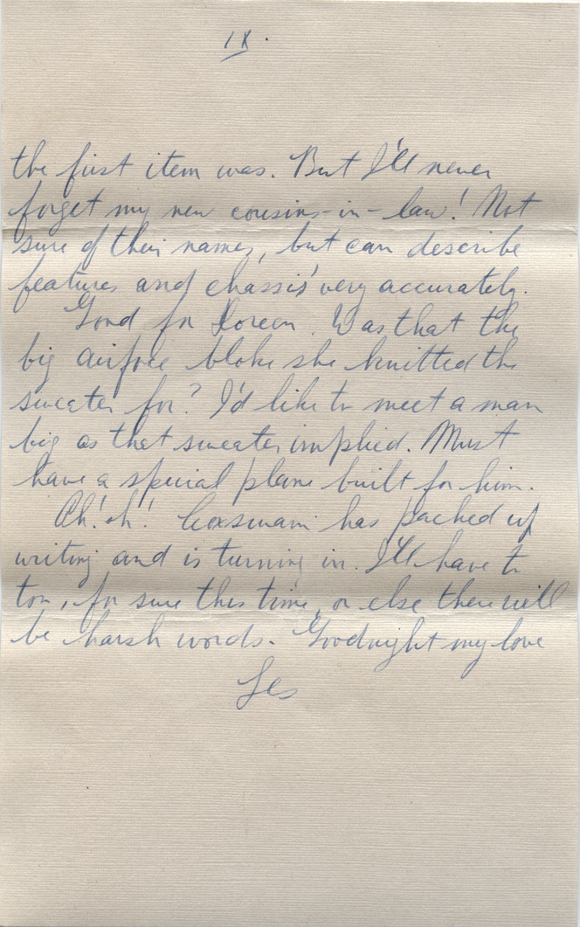 IX.
the first item was. But I'll never
forget my new cousins-in-law! Not
sure of their names, but can describe
features and chassis' very accurately.
Good for Doreen. Was that the
big airforce bloke she knitted the
sweater for? I'd like to meet a man
big as that sweater implied. Must
have a special plane built for him.
Oh! oh! Coxswain has packed up
writing and is turning in. I'll have to
too, for sure this time, or else there will
be harsh words. Goodnight my love
Les